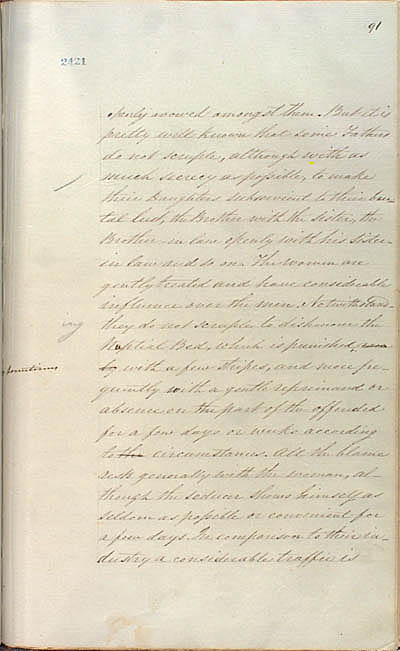 91
2421
openly avowed amongst them. But it is
pretty well known that some Fathers
do not scruple, although with as
much secrecy as possible, to make
their Daughters subservient to their bru-
tal lust, the Brother with the Sister, the
Brother-in law openly with his Sister
in law and so on. The women are
gently treated and have considerable
influence over the men. Notwithstand-
ing
they do not scruple to dishonour the
Nuptial Bed, which is punished,
sometimes
with a few stripes, and more fre-
quently with a gentle reprimand or
absence on the part of the offended
for a few days or weeks according
to the circumstances. All the blame
rests generally with the woman, al-
though the seducer shows himself as
seldom as possible or convenient for
a few days. In comparison to their in-
dustry a considerable traffic is